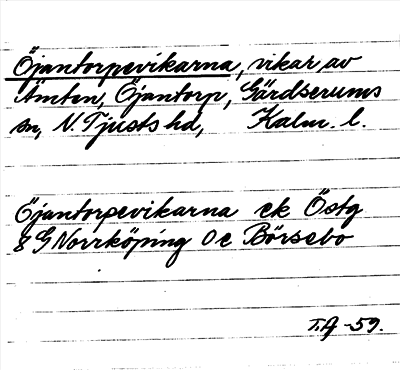 Öjantorpevikarna, vikar av
Ämten, Öjantorp, Gärdserums
sn, N. Tjusts hd, Kalm. l.
Öjantorpevikarna ek Östg
8 G Norrköping 0 e Börsebo
T.A -59.